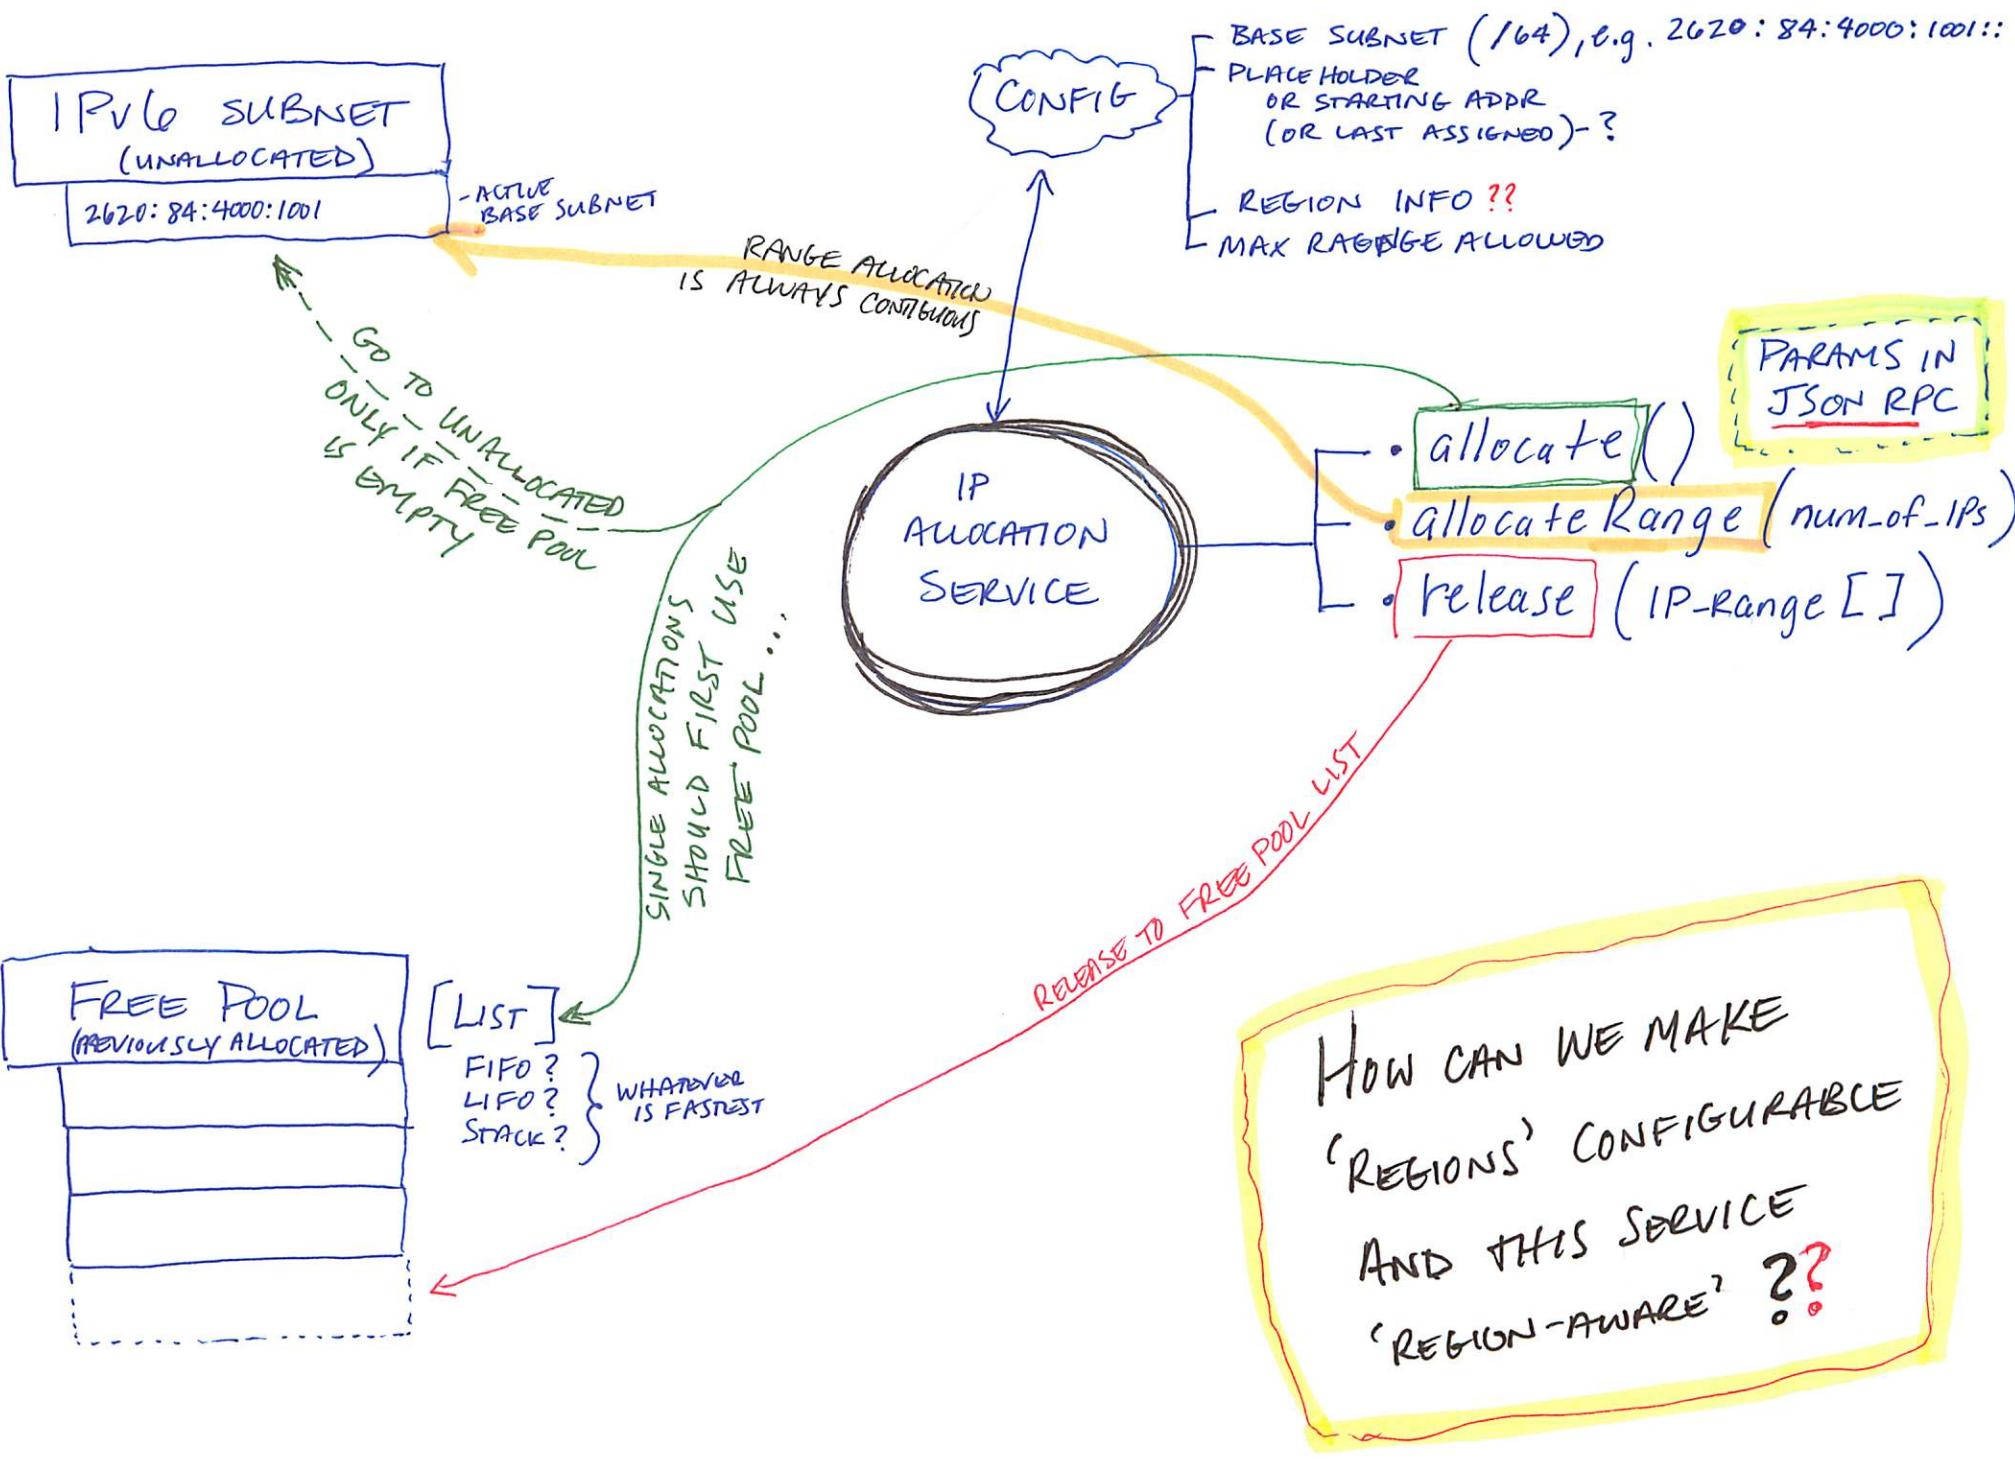 IPv6 SUBNET
(UNALLOCATED)
2620:84:4000:1001
-ACTIVE
BASE SUBNET
CONFIG
BASE SUBNET (/64), e.g. 2620:84:4000:1001::
PLACEHOLDER
OR STARTING ADDR
(OR LAST ASSIGNED)-?
REGION INFO ??
MAX RANGE ALLOWED
RANGE ALLOCATION
IS ALWAYS CONTIGUOUS
GO TO UNALLOCATED
ONLY IF FREE POOL
IS EMPTY
PARAMS IN
JSON RPC
IP
ALLOCATION
SERVICE
• allocate()
• allocateRange(num_of_IPs)
• release (IP-Range[])
SINGLE ALLOCATIONS
SHOULD FIRST USE
FREE POOL...
RELEASE TO FREE POOL LIST
FREE POOL
(PREVIOUSLY ALLOCATED)
[LIST]
FIFO?
LIFO?
STACK?
WHATEVER
IS FASTEST
HOW CAN WE MAKE
'REGIONS' CONFIGURABLE
AND THIS SERVICE
'REGION-AWARE' ??